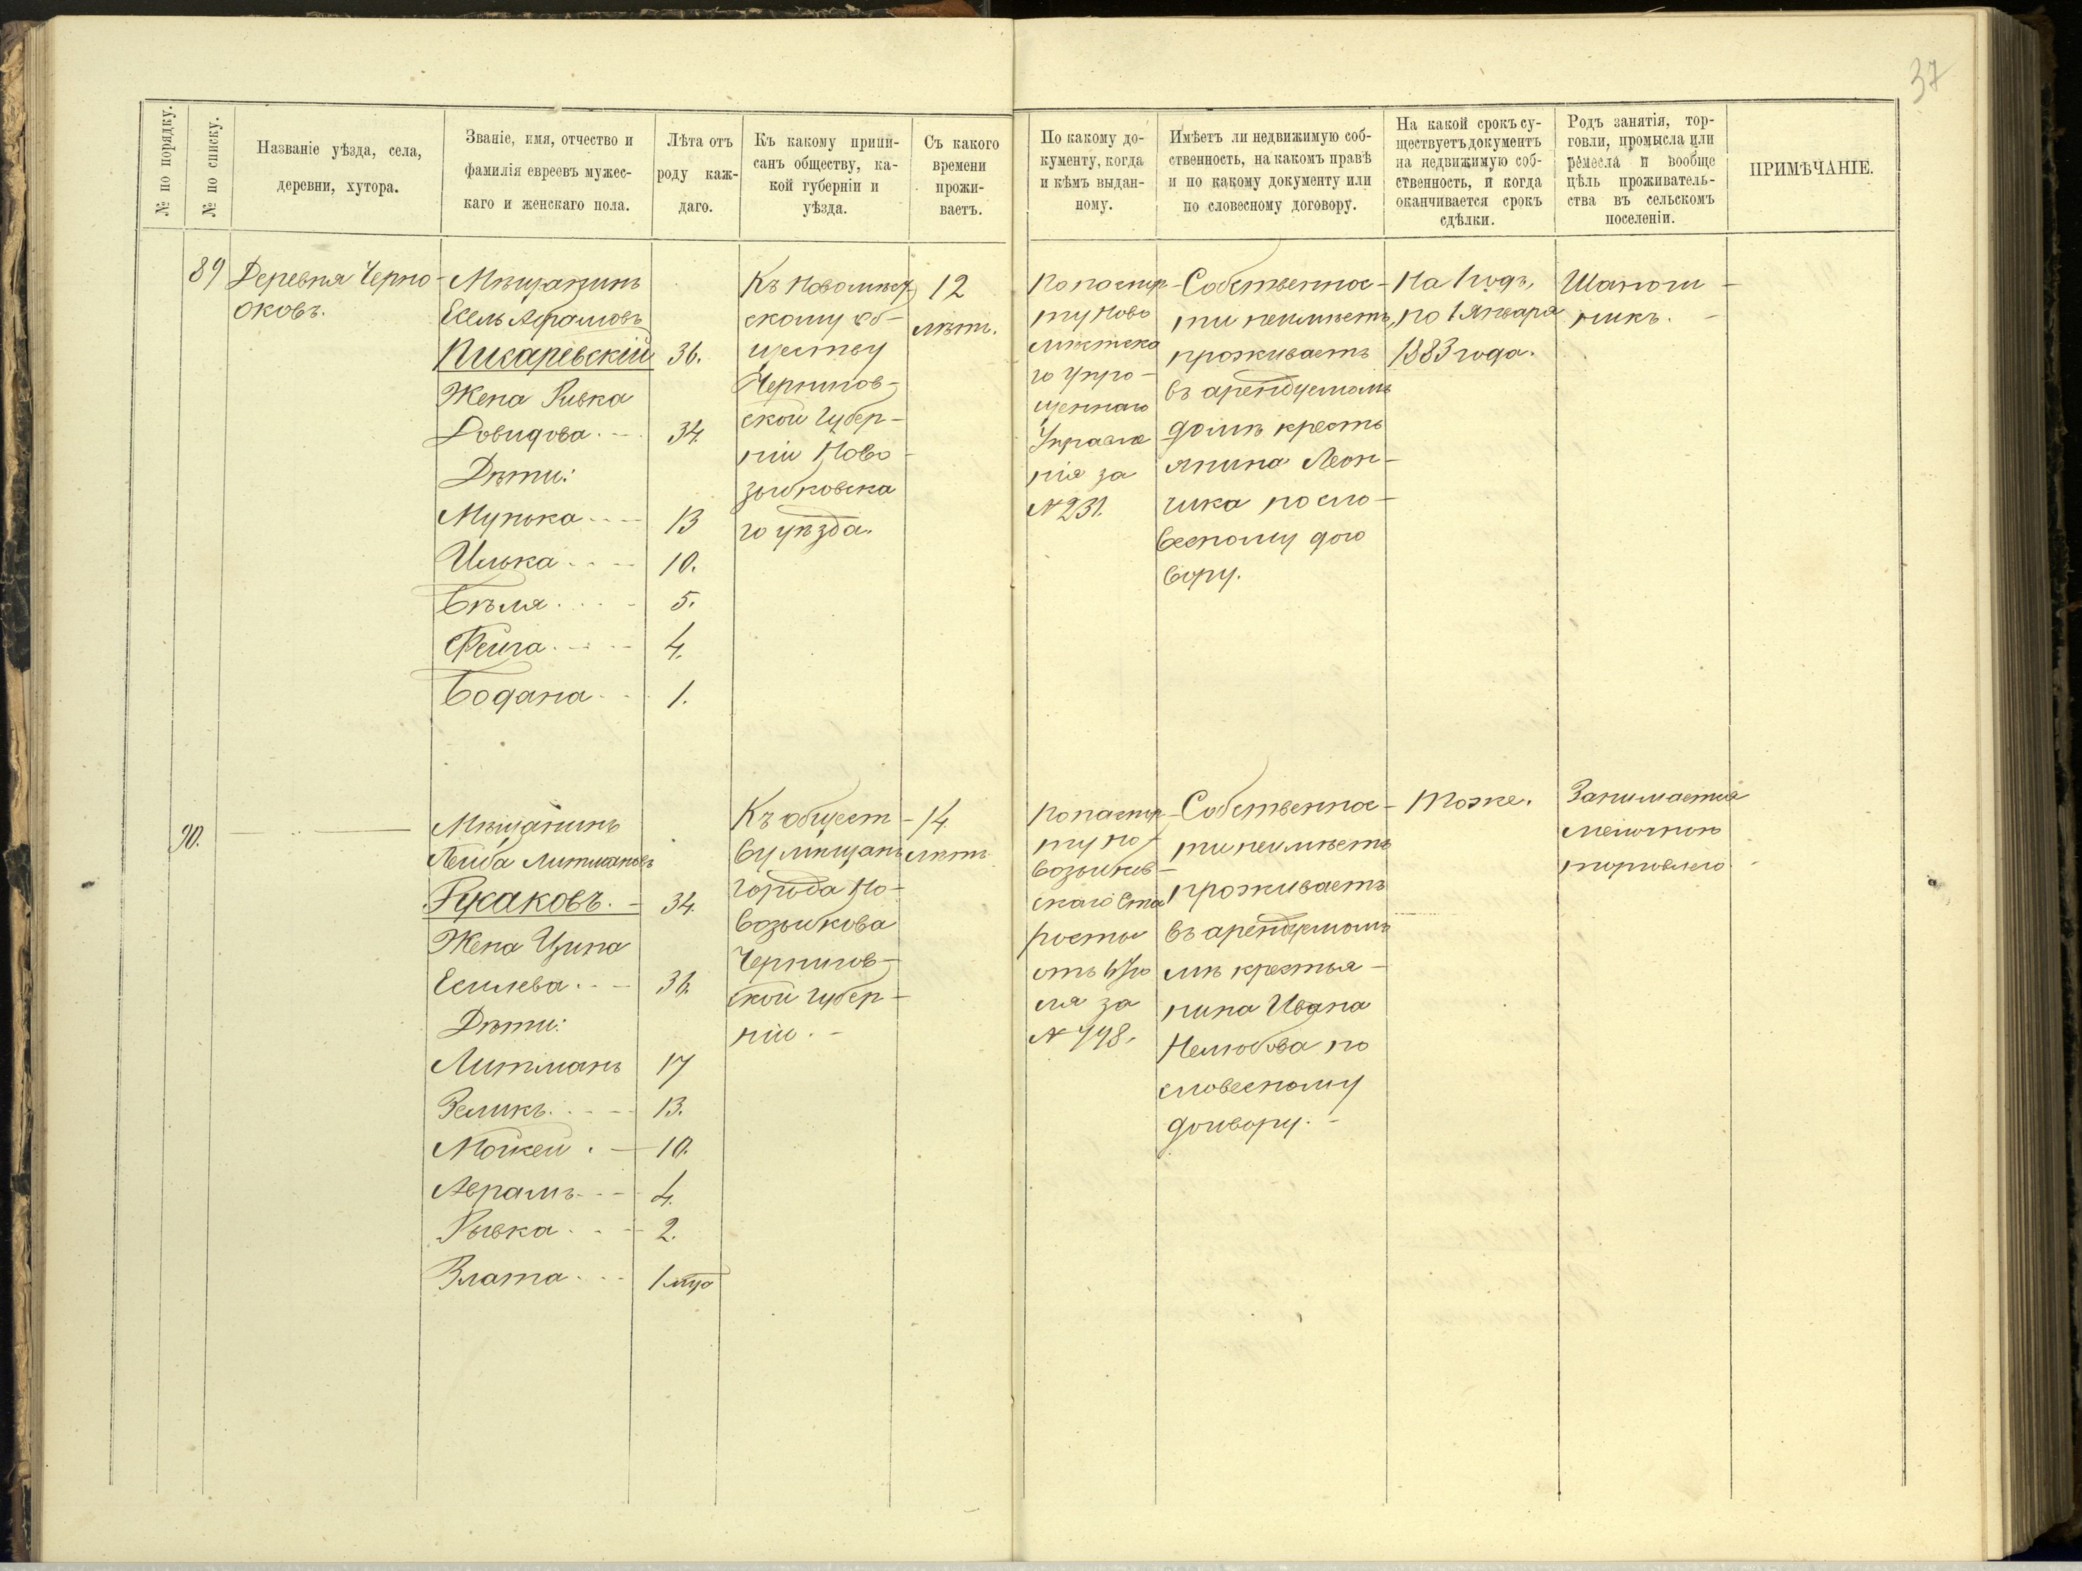 37
№ по порядку.
№ по списку.
Названіе уѣзда, села,
деревни, хутора.
Званіе, имя, отчество и
фамилія евреевъ мужес-
каго и женскаго пола.
Лѣта отъ
роду каж-
даго.
Къ какому припи-
санъ обществу, ка-
кой губерніи и
уѣзда.
Съ какого
времени
прожи-
ваетъ.
По какому до-
кументу, когда
и кѣмъ выдан-
ному.
Имѣетъ ли недвижимую соб-
ственность, на какомъ правѣ
и по какому документу или
по словесному договору.
На какой срокъ су-
ществуетъ документъ
на недвижимую соб-
ственность, и когда
оканчивается срокъ
сдѣлки.
Родъ занятія, тор-
говли, промысла или
ремесла и вообще
цѣль проживатель-
ства въ сельскомъ
поселеніи.
ПРИМѢЧАНІЕ.
89
Деревня Черно-
оковъ.
Мѣщанинъ
Есель Афромовъ
Пикаревскій 36.
Жена Ривка
Довидова. 34.
Дѣти:
Мунька 13
Илька 10.
Бѣля 5.
Фейга 4.
Бодана 1.
Къ Новомѣст-
скому об-
ществу
Чернигов-
ской Губер-
ніи Ново-
зыбковска
го уѣзда.
12
лѣтъ.
По паспор-
ту Ново
мѣстска
го упро-
щеннаго
Управле
нія за
№ 231.
Собственнос-
ти неимѣетъ,
проживаетъ
въ арендуемомъ
домѣ кресть
янина Леон-
чика по сло-
весному дого
вору.
На 1 годъ,
по 1 Января
1883 года.
Шапош-
никъ.
90.
Мѣщанинъ
Лейба Литмановъ
Рукаковъ. 34.
Жена Ципа
Есилева. 36.
Дѣти:
Литманъ 17
Зеликъ. 13.
Мойкей. 10.
Аврамъ 4.
Рывка 2.
Злата 1 мѣс
Къ общест-
ву мѣщанъ
города Но-
возыбкова
Чернигов-
ской губер-
ніи.
14
лѣтъ
По паспор-
ту но-
возыбков-
скаго Ста
росты
отъ
ля за
№ 498.
Собственнос-
ти неимѣетъ
проживаетъ
въ арендуемомъ
мѣ крестья-
нина Ивана
Нелюбова по
словесному
договору.
Тоже.
Занимается
мелочною
торговлею.